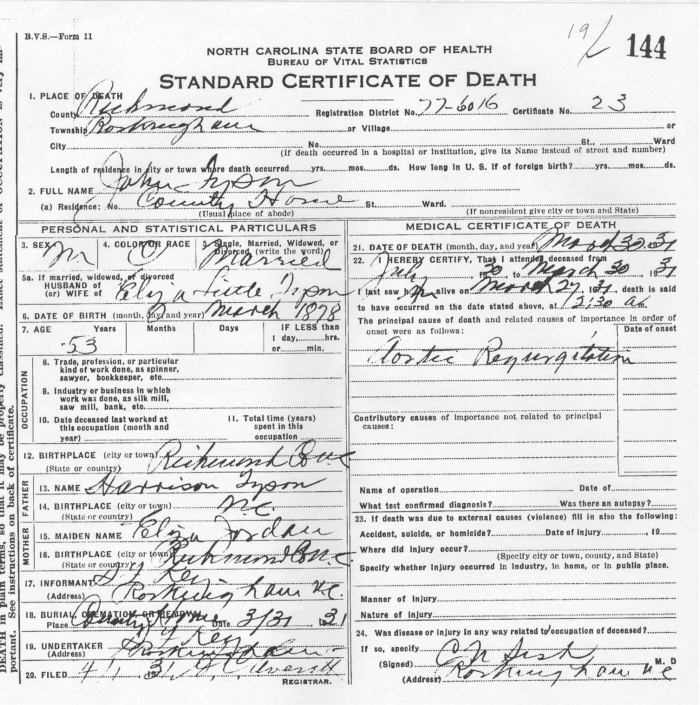 B.V.S.—Form 11
19/L 144
NORTH CAROLINA STATE BOARD OF HEALTH
BUREAU OF VITAL STATISTICS
STANDARD CERTIFICATE OF DEATH
1. PLACE OF DEATH
County Richmond Registration District No. 77-6016 Certificate No. 23
Township Rockingham or Village or
City No. St., Ward
(If death occurred in a hospital or institution, give its Name instead of street and number)
Length of residence in city or town where death occurred yrs. mos. ds. How long in U. S. if of foreign birth? yrs. mos. ds.
2. FULL NAME John Tyson
(a) Residence: No. County Home St. Ward.
(Usual place of abode) (If nonresident give city or town and State)
PERSONAL AND STATISTICAL PARTICULARS
3. SEX M 4. COLOR OR RACE C 5. Single, Married, Widowed, or Divorced (write the word) Married
5a. If married, widowed, or divorced
HUSBAND of
(or) WIFE of Eliza Little Tyson
6. DATE OF BIRTH (month, day, and year) March 1878
7. AGE Years Months Days IF LESS than
1 day, hrs.
53 or min.
OCCUPATION
8. Trade, profession, or particular
kind of work done, as spinner,
sawyer, bookkeeper, etc.
9. Industry or business in which
work was done, as silk mill,
saw mill, bank, etc.
10. Date deceased last worked at
this occupation (month and
year)
11. Total time (years)
spent in this
occupation
12. BIRTHPLACE (city or town) Richmond Co NC
(State or country)
FATHER
13. NAME Harrison Tyson
14. BIRTHPLACE (city or town) N.C.
(State or country)
MOTHER
15. MAIDEN NAME Eliza Jordan
16. BIRTHPLACE (city or town) Richmond Co N.C.
(State or country)
17. INFORMANT Key
(Address) Rockingham N.C.
18. BURIAL, CREMATION, OR REMOVAL
Place County Home Date 3/31 1931
19. UNDERTAKER Key
(Address) Rockingham
20. FILED 4/1 31
REGISTRAR.
MEDICAL CERTIFICATE OF DEATH
21. DATE OF DEATH (month, day, and year) March 30 31
22. I HEREBY CERTIFY, That I attended deceased from
July 20 to March 30 1931
I last saw him alive on March 27, 31, death is said
to have occurred on the date stated above, at 12:30 a.m.
The principal cause of death and related causes of importance in order of
onset were as follows:
Date of onset
Aortic Regurgitation
Contributory causes of importance not related to principal
cause:
Name of operation Date of
What test confirmed diagnosis? Was there an autopsy?
23. If death was due to external causes (violence) fill in also the following:
Accident, suicide, or homicide? Date of injury , 19
Where did injury occur?
(Specify city or town, county, and State)
Specify whether injury occurred in industry, in home, or in public place.
Manner of injury
Nature of injury
24. Was disease or injury in any way related to occupation of deceased?
If so, specify
(Signed) M. D
(Address) Rockingham NC
DEATH in plain terms, so that it may be properly classified.
portant. See instructions on back of certificate.